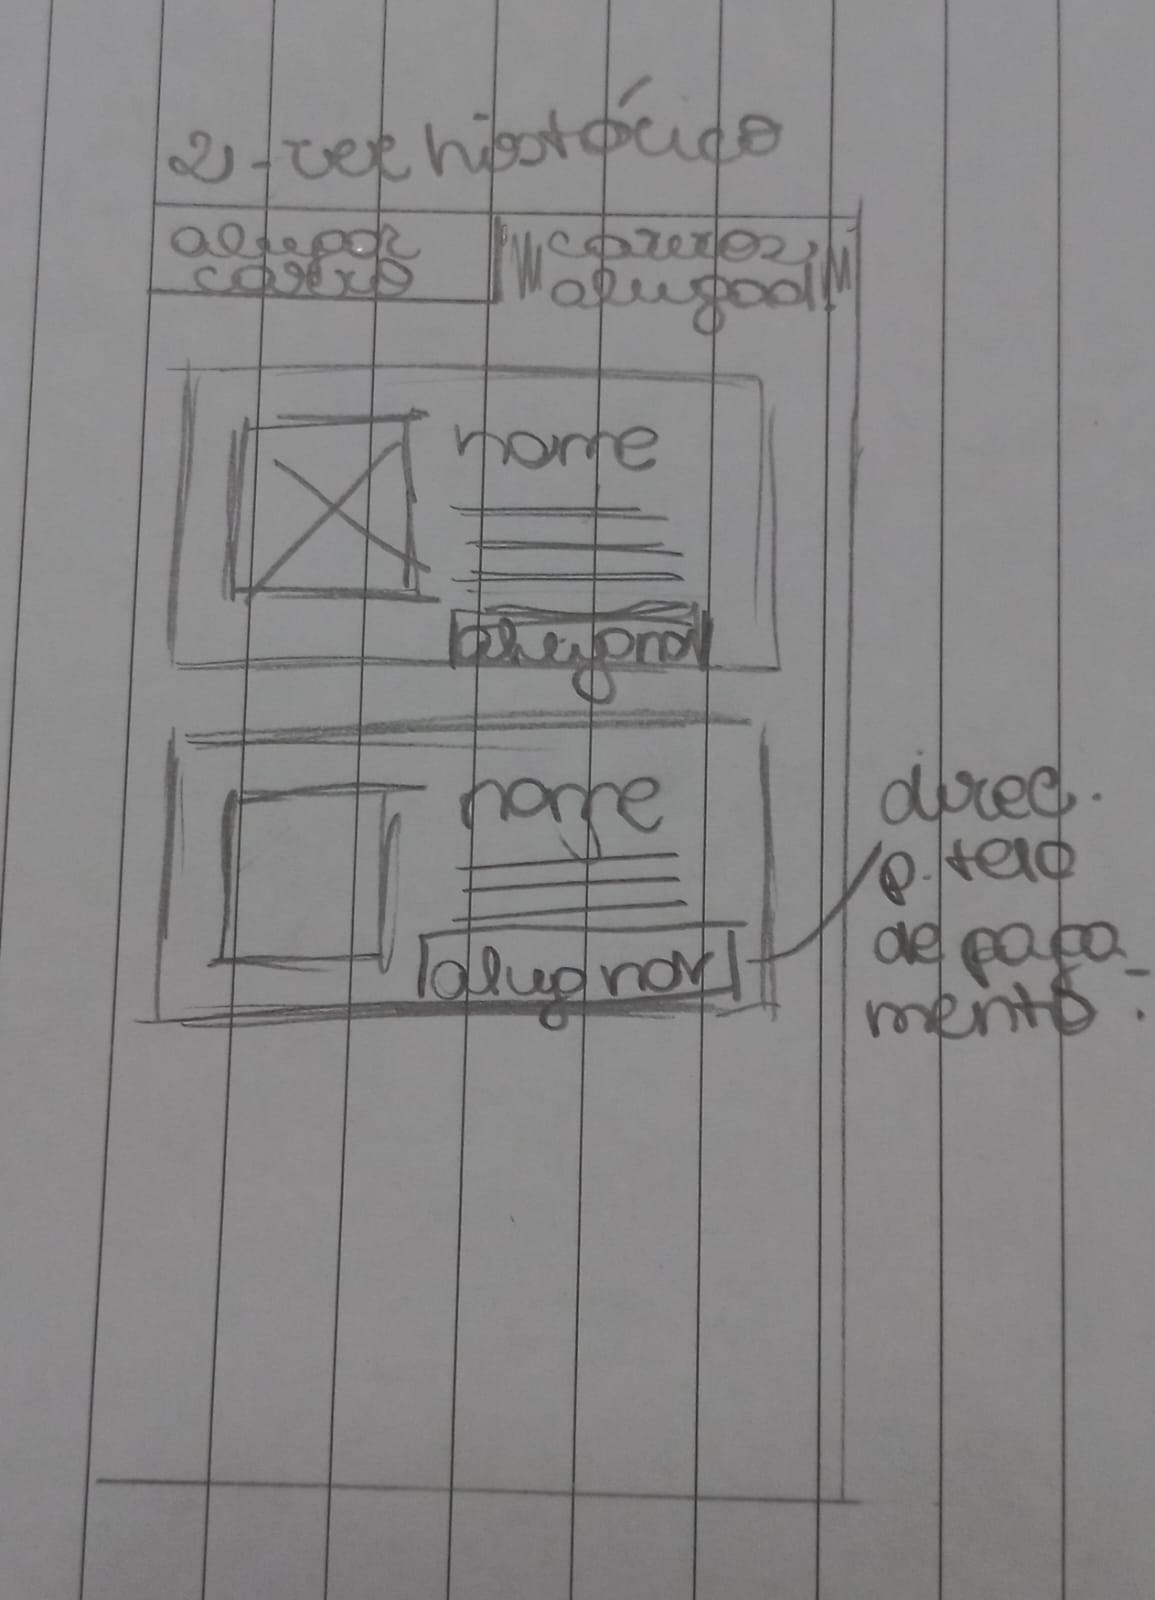 2 - ver histórico
alugar
carro
carros
alugad
nome
alug nov
nome
alug nov
direc.
p. tela
de paga-
mento.